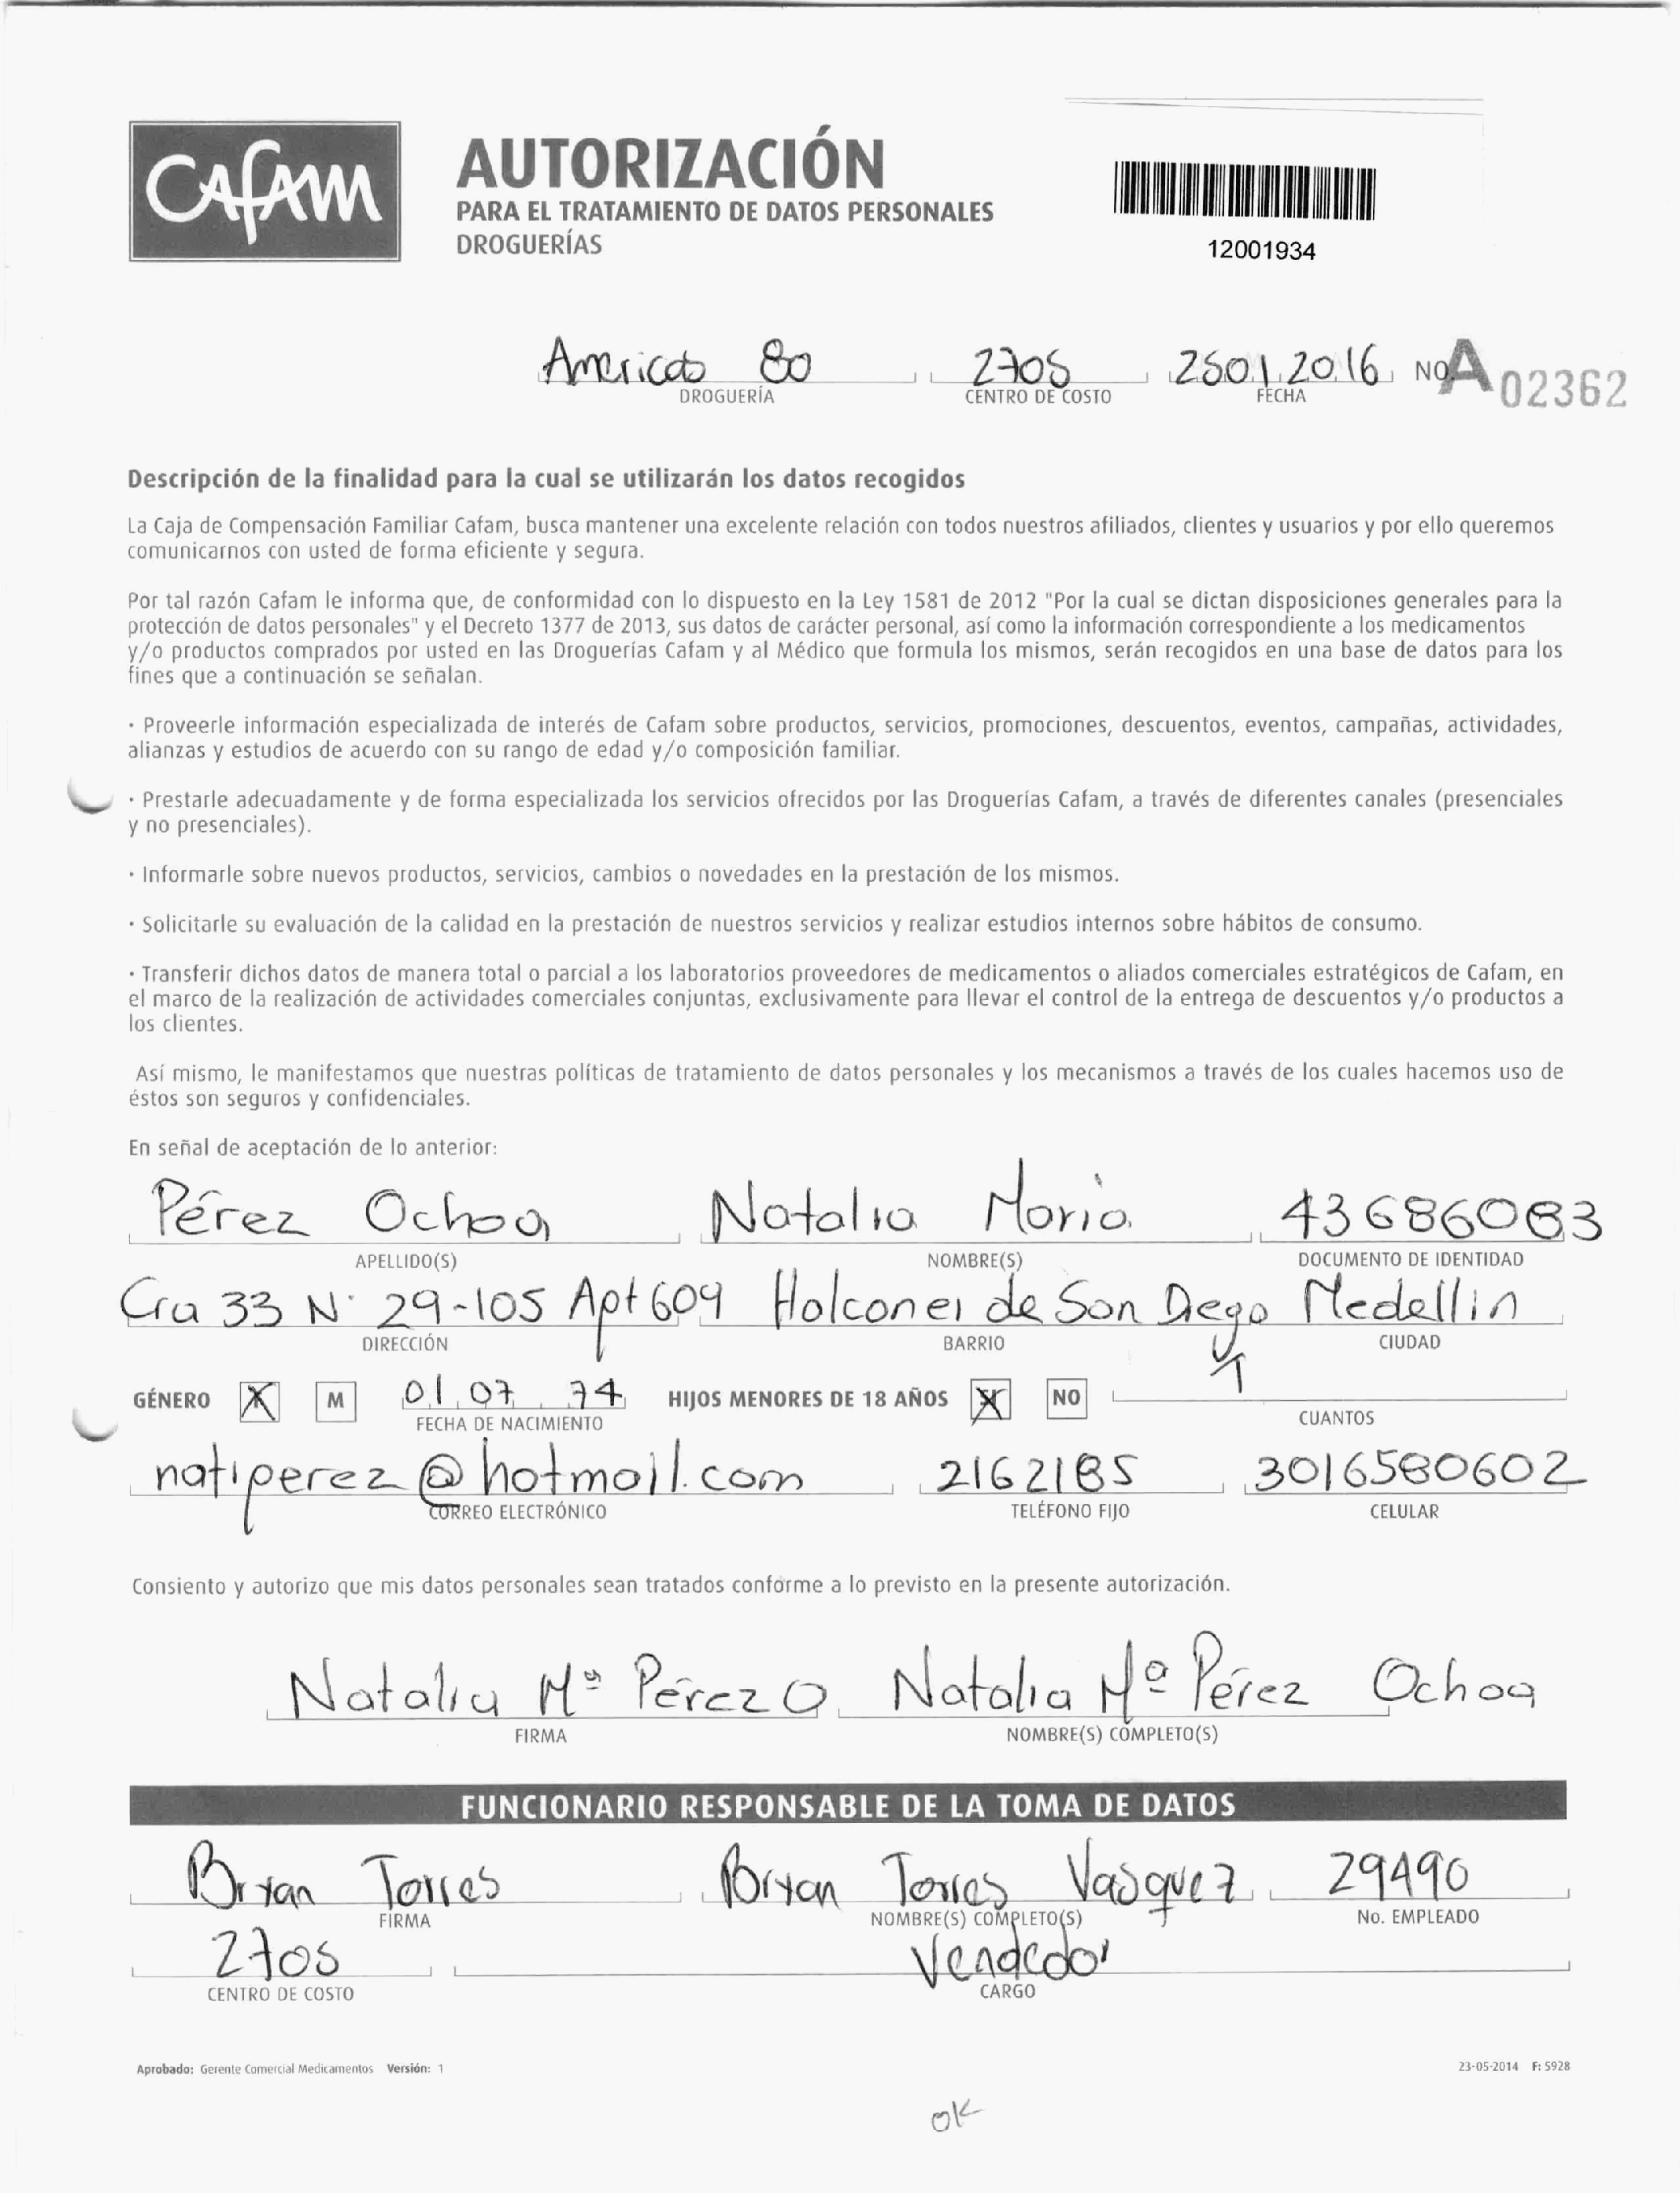 CAFAM
AUTORIZACIÓN
PARA EL TRATAMIENTO DE DATOS PERSONALES
DROGUERÍAS
12001934
Americas 80 2705 25 01 2016 NO. A 02362
DROGUERÍA CENTRO DE COSTO FECHA
Descripción de la finalidad para la cual se utilizarán los datos recogidos
La Caja de Compensación Familiar Cafam, busca mantener una excelente relación con todos nuestros afiliados, clientes y usuarios y por ello queremos
comunicarnos con usted de forma eficiente y segura.
Por tal razón Cafam le informa que, de conformidad con lo dispuesto en la Ley 1581 de 2012 "Por la cual se dictan disposiciones generales para la
protección de datos personales" y el Decreto 1377 de 2013, sus datos de carácter personal, así como la información correspondiente a los medicamentos
y/o productos comprados por usted en las Droguerías Cafam y al Médico que formula los mismos, serán recogidos en una base de datos para los
fines que a continuación se señalan.
· Proveerle información especializada de interés de Cafam sobre productos, servicios, promociones, descuentos, eventos, campañas, actividades,
alianzas y estudios de acuerdo con su rango de edad y/o composición familiar.
· Prestarle adecuadamente y de forma especializada los servicios ofrecidos por las Droguerías Cafam, a través de diferentes canales (presenciales
y no presenciales).
· Informarle sobre nuevos productos, servicios, cambios o novedades en la prestación de los mismos.
· Solicitarle su evaluación de la calidad en la prestación de nuestros servicios y realizar estudios internos sobre hábitos de consumo.
· Transferir dichos datos de manera total o parcial a los laboratorios proveedores de medicamentos o aliados comerciales estratégicos de Cafam, en
el marco de la realización de actividades comerciales conjuntas, exclusivamente para llevar el control de la entrega de descuentos y/o productos a
los clientes.
Así mismo, le manifestamos que nuestras políticas de tratamiento de datos personales y los mecanismos a través de los cuales hacemos uso de
éstos son seguros y confidenciales.
En señal de aceptación de lo anterior:
Pérez Ochoa Natalia María 43686083
APELLIDO(S) NOMBRE(S) DOCUMENTO DE IDENTIDAD
Cra 33 N° 29-105 Apt 609 Halcones de San Diego Medellin
DIRECCIÓN BARRIO CIUDAD
GÉNERO X M 01 07 74 HIJOS MENORES DE 18 AÑOS X NO 1
FECHA DE NACIMIENTO CUANTOS
natiperez@hotmail.com 2162185 3016580602
CORREO ELECTRÓNICO TELÉFONO FIJO CELULAR
Consiento y autorizo que mis datos personales sean tratados conforme a lo previsto en la presente autorización.
Natalia Mª Pérez O Natalia Mª Pérez Ochoa
FIRMA NOMBRE(S) COMPLETO(S)
FUNCIONARIO RESPONSABLE DE LA TOMA DE DATOS
Bryan Torres Bryan Torres Vasquez 29490
FIRMA NOMBRE(S) COMPLETO(S) No. EMPLEADO
2705 Vendedor
CENTRO DE COSTO CARGO
Aprobado: Gerente Comercial Medicamentos Versión: 1 23-05-2014 F: 5928
OK